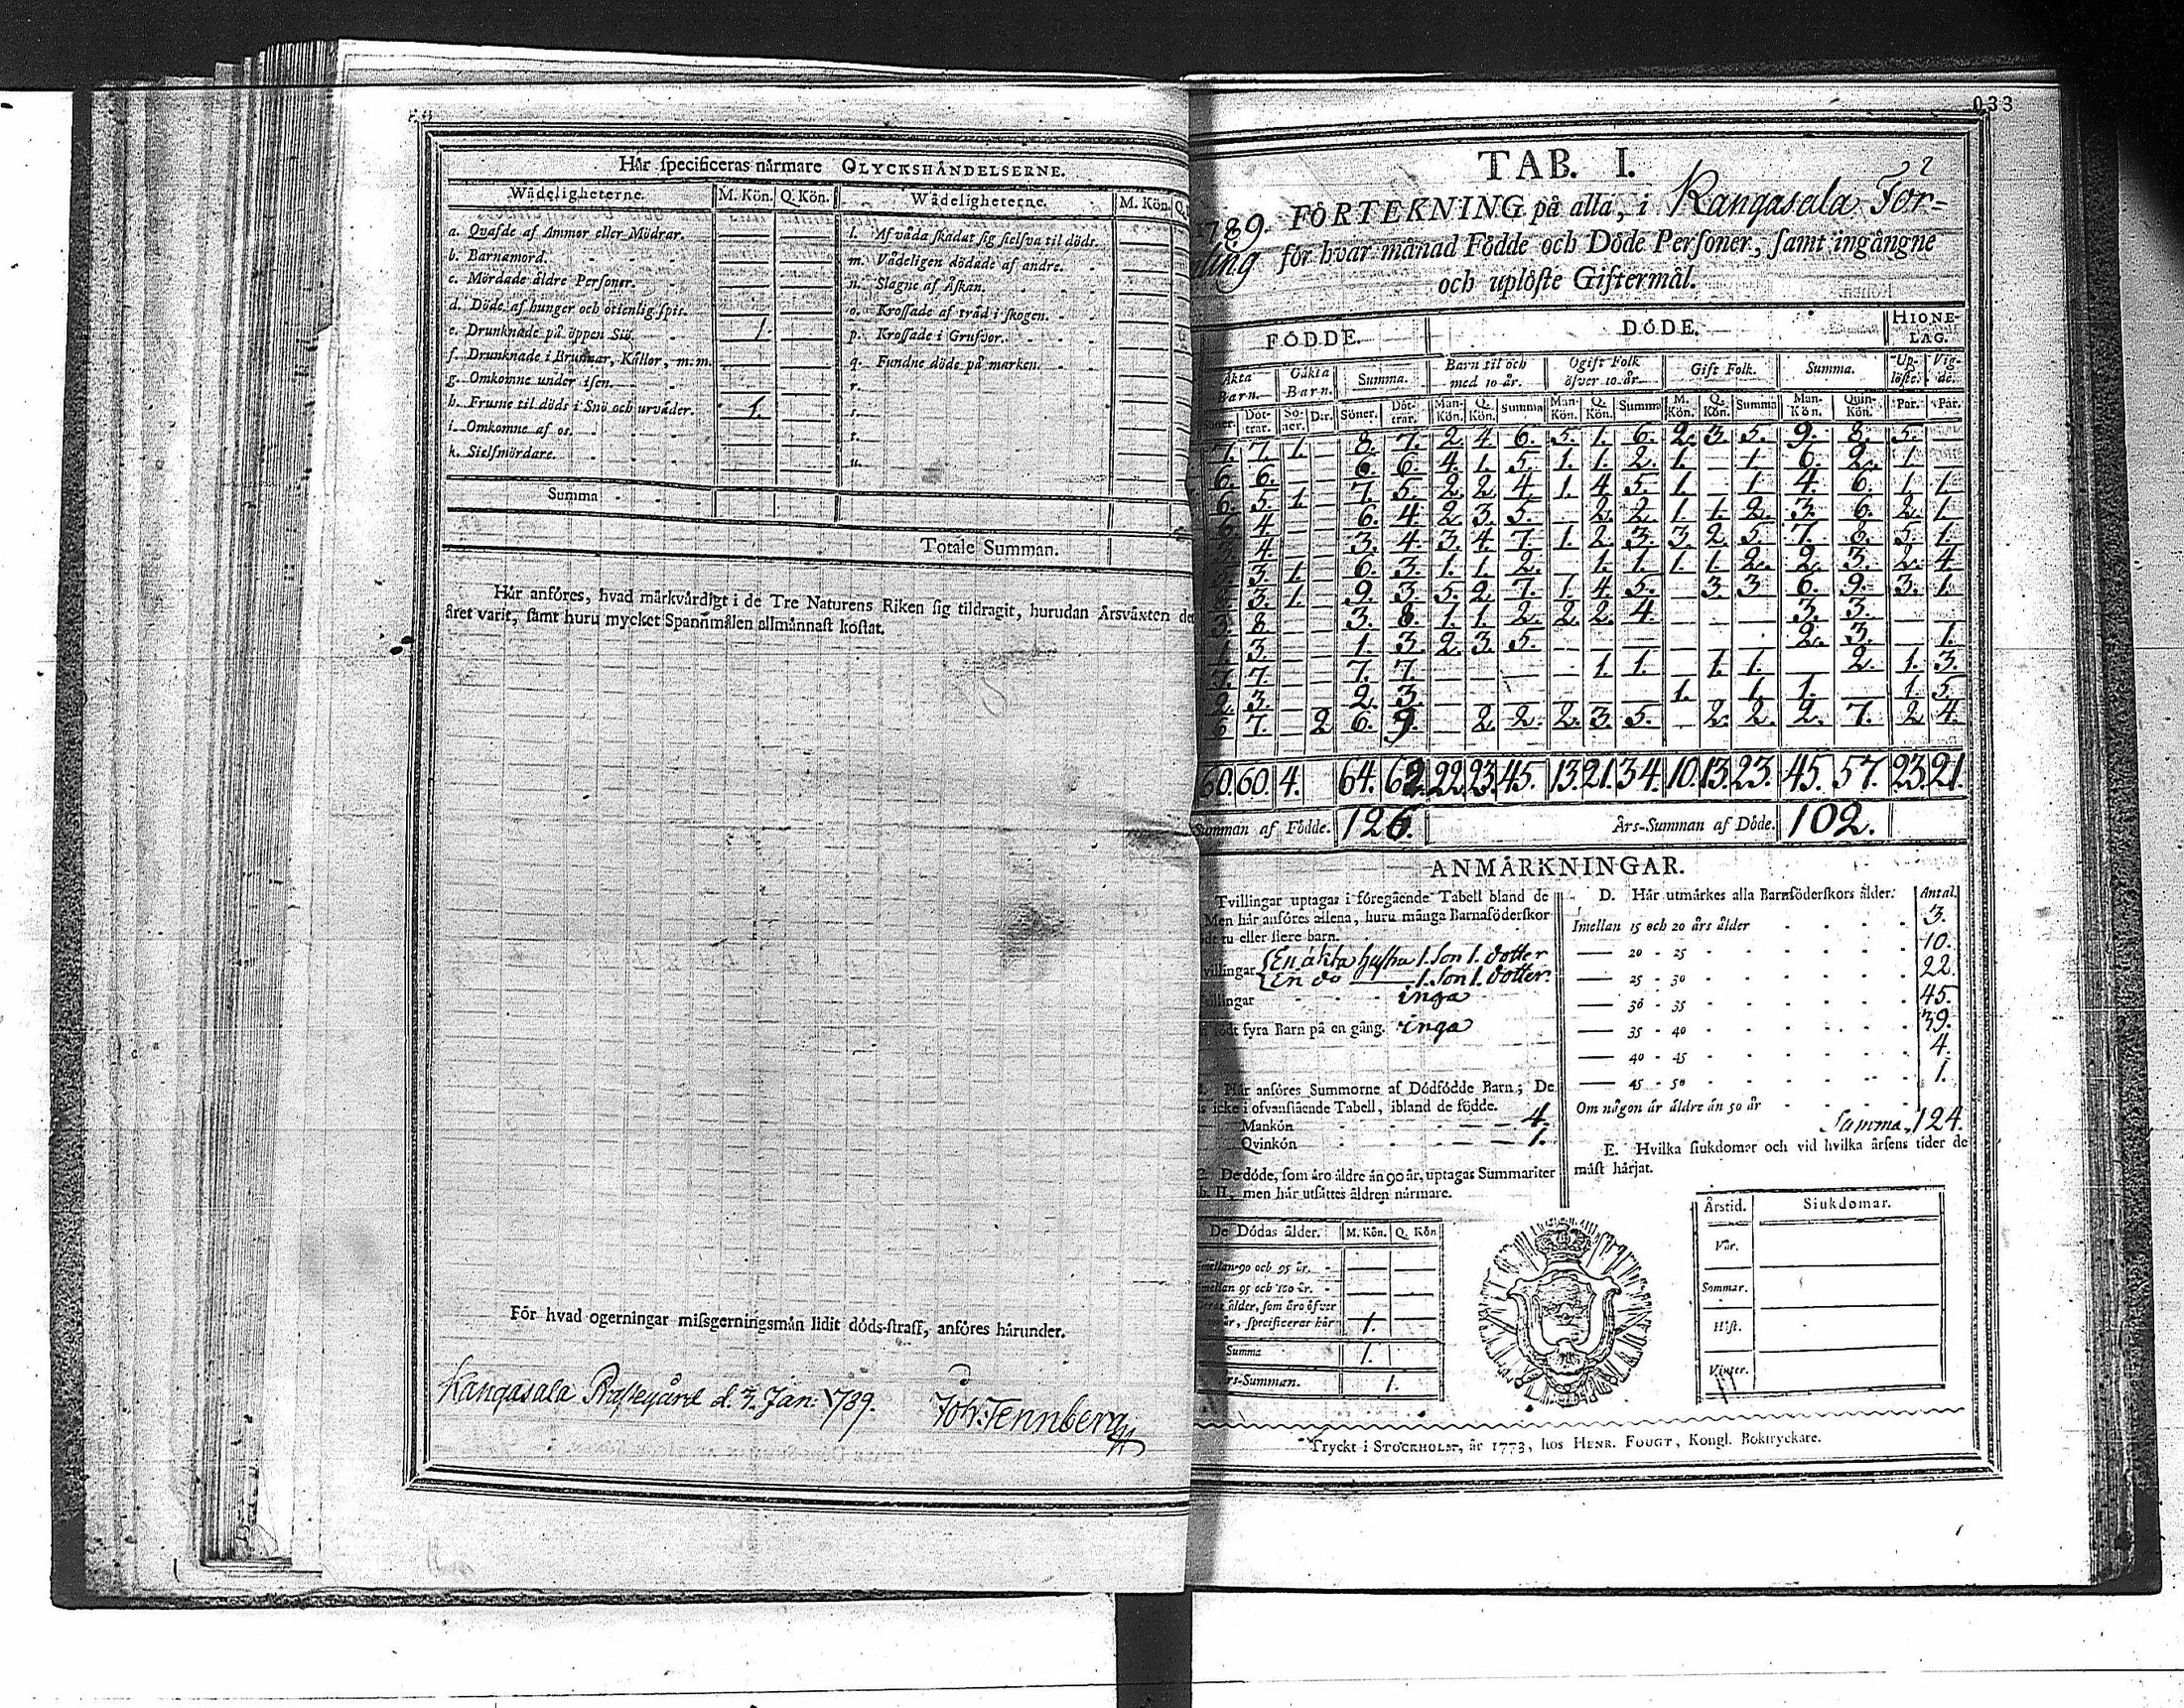 Hår specificeras nårmare OLYCKSHÅNDELSERNE.
Wådeligheterne. M. Kön. Q. Kön. Wådeligheterne. M. Kön. Q.
a. Qvafde af Ammor eller Mödrar. l. Af våda skadat sig sielfva til döds.
b. Barnamord. m. Vådeligen dödade af andre.
c. Mördade åldre Personer. n. Slagne af Åskan.
d. Döde af hunger och otienlig spis. o. Krossade af tråd i skogen.
e. Drunknade på öppen Siö. 1. p. Krossade i Grufvor.
f. Drunknade i Brunnar, Kållor, m. m. q. Fundne döde på marken.
g. Omkomne under isen. r.
h. Frusne til döds i Snö och urvåder. 1. s.
i. Omkomne af os. t.
k. Sielfmördare. u.
Summa
Totale Summan.
Hår anföres, hvad mårkvårdigt i de Tre Naturens Riken sig tildragit, hurudan Årsvåxten det
året varit, samt huru mycket Spannmålen allmånnast kostat.
För hvad ogerningar missgerningsmån lidit döds-straff, anföres hårunder.
Kangasala Prästegård d. Jan: 1789. Joh: Tennberg
033
TAB. I.
1789. FÖRTEKNING på alla, i Kangasala För=
ling för hvar månad Födde och Döde Personer, samt ingångne
och uplöste Giftermål.
FÖDDE. DÖDE. HIONE-LAG.
Åkta Barn. Oåkta Barn. Summa. Barn til och med 10 år. Ogift Folk öfver 10 år. Gift Folk. Summa. Up-löste. Vig-de.
Söner. Döt-trar. Sö-ner. D:r. Söner. Döt-trar. Man-Kön. Q. Kön. Summa Man-Kön. Q. Kön. Summa M. Kön. Q. Kön. Summa Man-Kön. Quin-Kön. Par. Par.
7. 7. 1. — 8. 7. 2. 4. 6. 5. 1. 6. 2. 3. 5. 9. 8. 5. —
6. 6. — — 6. 6. 4. 1. 5. 1. 1. 2. 1. — 1. 6. 2. 1. —
6. 5. 1. — 7. 5. 2. 2. 4. 1. 4. 5. 1. — 1. 4. 6. 1. 1.
6. 4. — — 6. 4. 2. 3. 5. — 2. 2. 1. 1. 2. 3. 6. 2. 1.
3. 4. — — 3. 4. 3. 4. 7. 1. 2. 3. 3. 2. 5. 7. 8. 5. 1.
3. 1. — 6. 3. 1. 1. 2. — 1. 1. 1. 1. 2. 2. 3. 2. 4.
3. 1. — 9. 3. 5. 2. 7. 1. 4. 5. — 3. 3. 6. 9. 3. 1.
3. 8. — — 3. 8. 1. 1. 2. 2. 2. 4. — — — 3. 3. — —
1. 3. — — 1. 3. 2. 3. 5. — — — — — — 2. 3. — 1.
7. 7. — — 7. 7. — — — — 1. 1. — 1. 1. — 2. 1. 3.
2. 3. — — 2. 3. — — — — — — 1. — 1. 1. — 1. 5.
6. 7. 2 6. 9. — 2. 2. 2. 3. 5. — 2. 2. 2. 7. 2 4.
60. 60. 4. 64. 62. 22. 23. 45. 13. 21. 34. 10. 13. 23. 45. 57. 23. 21.
Summan af Födde. 126. Års-Summan af Döde. 102.
ANMÅRKNINGAR.
Tvillingar uptagas i föregående Tabell bland de
Men hår anföres allena, huru många Barnaföderskor
födt tu eller flere barn.
villingar {En äkta hustru 1. Son 1. dotter
{En do 1. Son 1. dotter.
illingar inga
födt fyra Barn på en gång. inga
Hår anföres Summorne af Dödfödde Barn; De
icke i ofvanstående Tabell, ibland de födde.
Mankön 4.
Qvinkön 1.
C. De döde, som åro åldre ån 90 år, uptagas Summariter
b. II. men hår utsåttes åldren nårmare.
De Dödas ålder. M. Kön. Q. Kön
imellan 90 och 95 år.
imellan 95 och 100 år.
ålder, som åro öfver
år, specificerar hår 1.
Summa 1.
rs-Summan. 1.
D. Hår utmårkes alla Barnföderskors ålder: Antal.
Imellan 15 och 20 års ålder 3.
— 20 - 25 10.
— 25 - 30 22.
— 30 - 35 45.
— 35 - 40 39.
— 40 - 45 4.
— 45 - 50 1.
Om någon år åldre ån 50 år
Summa, 124.
E. Hvilka siukdomar och vid hvilka årsens tider de
måst hårjat.
Årstid. Siukdomar.
Vår.
Sommar.
Höst.
Vinter.
Tryckt i STOCKHOLM, år 1773, hos HENR. FOUGT, Kongl. Boktryckare.